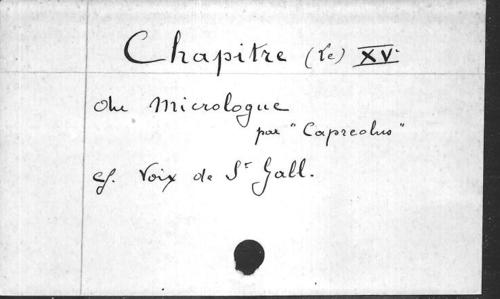 Chapitre (Le) XV.
du Micrologue
par "Capreolus"
cf. Voix de St Gall.